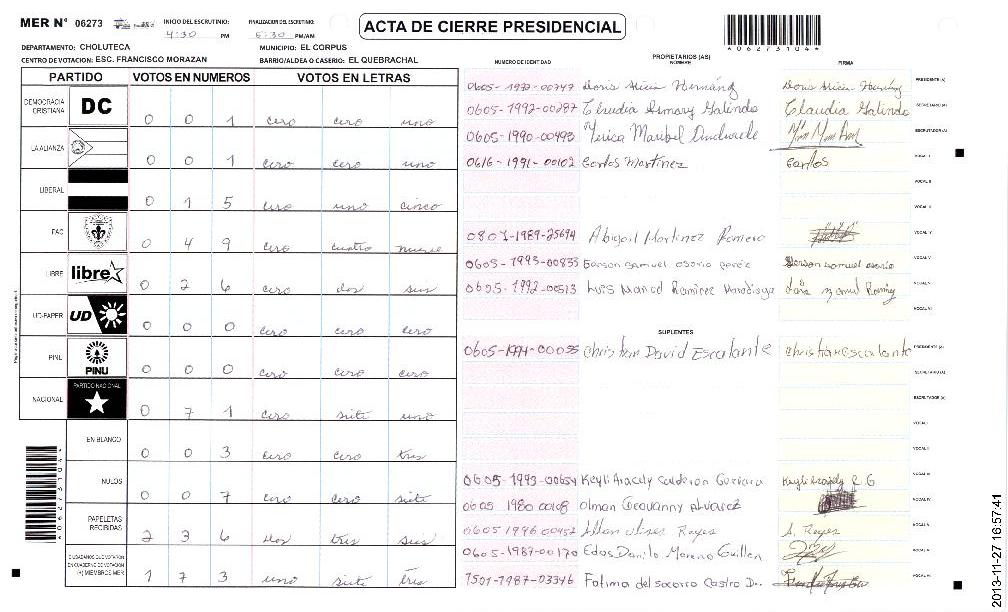 MER N° 06273 INICIO DEL ESCRUTINIO: FINALIZACION DEL ESCRUTINIO: ACTA DE CIERRE PRESIDENCIAL
4:30 PM 5:30 PM/AM
DEPARTAMENTO: CHOLUTECA MUNICIPIO: EL CORPUS
0627310 4
CENTRO DE VOTACION: ESC. FRANCISCO MORAZAN BARRIO/ALDEA O CASERIO: EL QUEBRACHAL
PARTIDO VOTOS EN NUMEROS VOTOS EN LETRAS
DEMOCRACIA CRISTIANA DC 0 0 1 cero cero uno
LA ALIANZA 0 0 1 cero cero uno
LIBERAL 0 1 5 cero uno cinco
PAC 0 4 9 cero cuatro nueve
LIBRE libre 0 2 6 cero dos seis
UD-FAPER UD 0 0 0 cero cero cero
PINU PINU 0 0 0 cero cero cero
NACIONAL PARTIDO NACIONAL 0 7 1 cero siete uno
EN BLANCO 0 0 3 cero cero tres
NULOS 0 0 7 cero cero siete
PAPELETAS RECIBIDAS 2 3 6 dos tres seis
CIUDADANOS QUE VOTARON EN CUADERNO DE VOTACION (+) MIEMBROS MER 1 7 3 uno siete tres
NUMERO DE IDENTIDAD PROPIETARIOS (AS) NOMBRE FIRMA
Doris Alicia Hernández PRESIDENTE (A)
0605-1992-00287 Claudia Galindo SECRETARIO (A)
0605-1990-00493 Maribel Andrade ESCRUTADOR (A)
0616-1991-00102 Carlos Martinez Carlos VOCAL I
VOCAL II
VOCAL III
0801-1989-25694 Abigail Martinez Romero VOCAL IV
0605-1993-00835 Gerson Samuel Osorio VOCAL V
0605-1992-00513 Luis Manuel Ramirez VOCAL V
VOCAL VI
SUPLENTES
Christian David Escalante Christian Escalante PRESIDENTE (A)
SECRETARIO (A)
ESCRUTADOR (A)
VOCAL I
VOCAL II
0605-1993-00654 Keyli Aracely Calderón Guevara Keyli Aracely C G VOCAL III
0605 1980 00108 Olman Geovanny Alvarez VOCAL IV
Reyes A. Reyes VOCAL V
0605-1987-00170 Danilo Moreno Guillen
1501-1987-03346 Fatima del Socorro Castro D. VOCAL VI
2013-11-27 16:57:41